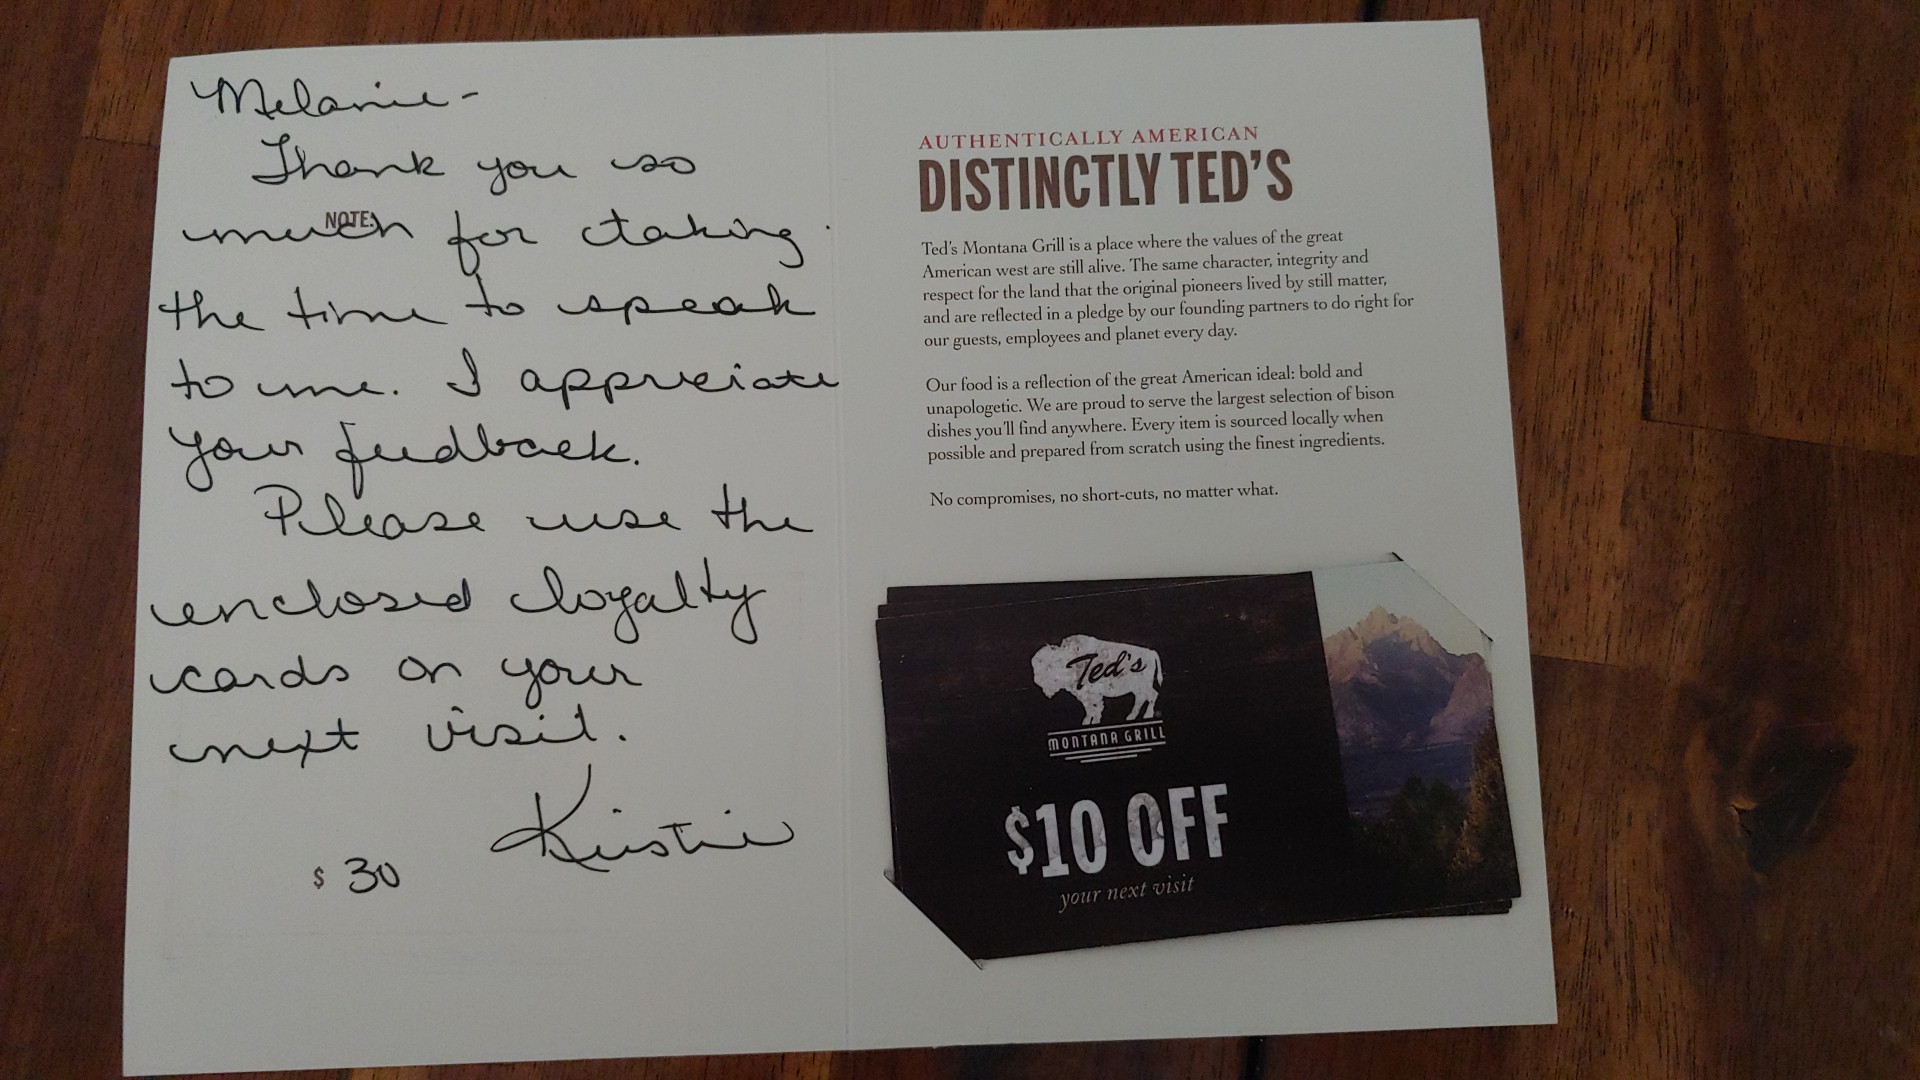 Melanie-
Thank you so
NOTE:
much for taking
the time to speak
to me. I appreciate
your feedback.
Please use the
enclosed loyalty
cards on your
next visit.
Kirstie
$ 30
AUTHENTICALLY AMERICAN
DISTINCTLY TED'S
Ted's Montana Grill is a place where the values of the great
American west are still alive. The same character, integrity and
respect for the land that the original pioneers lived by still matter,
and are reflected in a pledge by our founding partners to do right for
our guests, employees and planet every day.
Our food is a reflection of the great American ideal: bold and
unapologetic. We are proud to serve the largest selection of bison
dishes you'll find anywhere. Every item is sourced locally when
possible and prepared from scratch using the finest ingredients.
No compromises, no short-cuts, no matter what.
Ted's
MONTANA GRILL
$10 OFF
your next visit